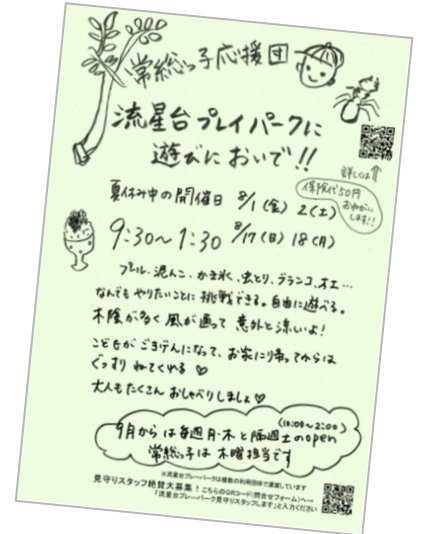 常総っ子応援団
流星台プレイパークに
遊びに おいで!!
詳しくは⇑
保険代50円
おねがい
します!!
夏休み中の開催日 8/1(金) 2(土)
9:30〜1:30 8/17(日) 18(月)
プール、泥んこ、かき氷、虫とり、ブランコ、木工…
なんでも やりたいことに 挑戦できる。自由に遊べる。
木陰が多く 風が通って 意外と涼しいよ!
こどもが ごきげんになって、お家に帰ってからは
ぐっすり ねてくれる ♡
大人もたくさん おしゃべりしましょ♡
(10:00〜2:00)
9月からは毎週月・木と隔週土のopen
常総っ子は 木曜担当です
※流星台プレーパークは複数の利用団体で運営しています
見守りスタッフ絶賛大募集!こちらのQRコード(問合せフォーム)へ→
「流星台プレーパーク見守りスタッフします」と入力ください